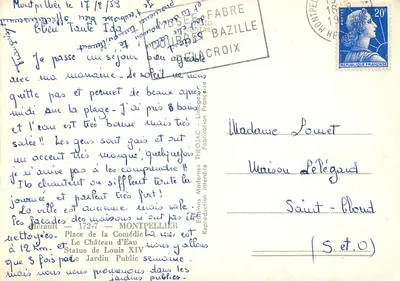 Montpellier le 17/9/59
Chère Tante Ida
Je passe un séjour bien agréable
avec ma marraine. Le soleil ne nous
quitte pas et permet de beaux après-
midi sur la plage. J'ai pris 8 bains
et l'eau est très bonne mais très
salée !! Les gens sont gais et ont
un accent très marqué, quelquefois
je n'arrive pas à les comprendre !!
Ils chantent ou sifflent toute la
journée et parlent très fort !
La ville est curieuse mais sale.
les façades des maisons n'ont pas été
nettoyées. La mer est
à 12 km. et nous y allons
que 3 fois par semaine
mais nous nous promenons dans les
jardins publics.
Hérault - 172-7 - MONTPELLIER
Place de la Comédie
Le Château d'Eau
Statue de Louis XIV
Jardin Public
Editions Modernes THEOJAC - Limoges
Reproduction interdite Fabrication Française
MUSÉE FABRE
COURBET BAZILLE
DELACROIX
MONTPELLIER
20F
REPUBLIQUE FRANÇAISE
Madame Louet
Maison Lelégard
Saint-Cloud
(S. et O)